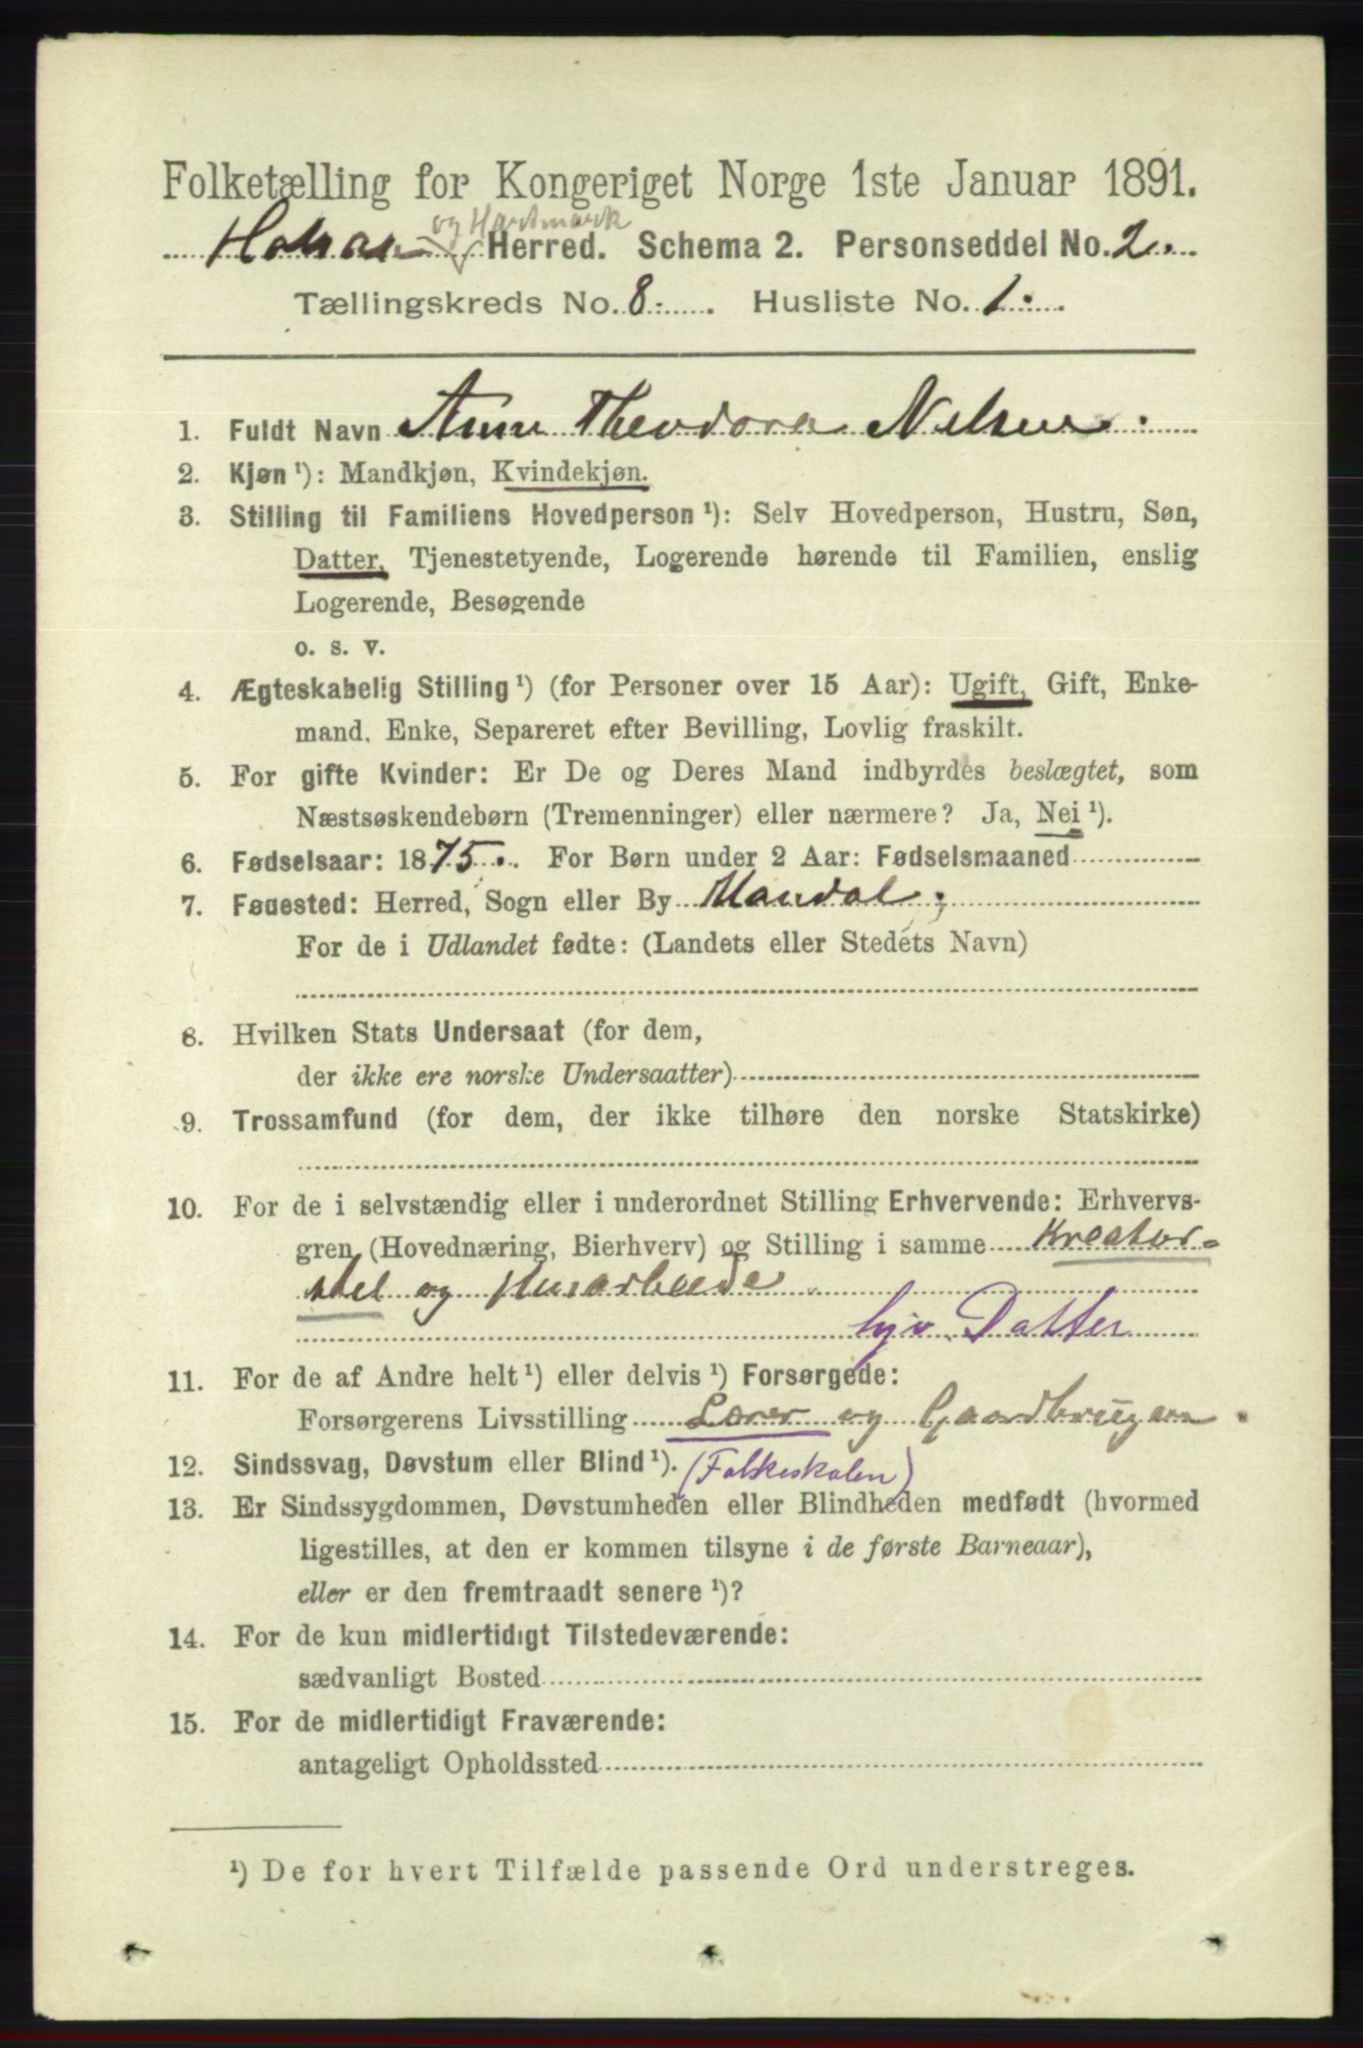 Folketælling for Kongeriget Norge 1ste Januar 1891.
og Hartmark
Herred. Schema 2. Personseddel No. 2.
Tællingskreds No. 8. Husliste No. 1.
1. Fuldt Navn Anne Theodora Nilsen.
2. Kjøn ¹): Mandkjøn, Kvindekjøn.
3. Stilling til Familiens Hovedperson ¹): Selv Hovedperson, Hustru, Søn,
Datter, Tjenestetyende, Logerende hørende til Familien, enslig
Logerende, Besøgende
o. s. v.
4. Ægteskabelig Stilling ¹) (for Personer over 15 Aar): Ugift, Gift, Enke-
mand. Enke, Separeret efter Bevilling, Lovlig fraskilt.
5. For gifte Kvinder: Er De og Deres Mand indbyrdes beslægtet, som
Næstsøskendebørn (Tremenninger) eller nærmere? Ja, Nei ¹).
6. Fødselsaar: 1875. For Børn under 2 Aar: Fødselsmaaned
7. Fødested: Herred, Sogn eller By Mandal;
For de i Udlandet fødte: (Landets eller Stedets Navn)
8. Hvilken Stats Undersaat (for dem,
der ikke ere norske Undersaatter)
9. Trossamfund (for dem, der ikke tilhøre den norske Statskirke)
10. For de i selvstændig eller i underordnet Stilling Erhvervende: Erhvervs-
gren (Hovednæring, Bierhverv) og Stilling i samme Kreatur-
stel og Husarbeide
hjv. Datter
11. For de af Andre helt ¹) eller delvis ¹) Forsørgede:
Forsørgerens Livsstilling Lærer og Gaardbruger.
12. Sindssvag, Døvstum eller Blind ¹). (Folkeskolen)
13. Er Sindssygdommen, Døvstumheden eller Blindheden medfødt (hvormed
ligestilles, at den er kommen tilsyne i de første Barneaar),
eller er den fremtraadt senere ¹)?
14. For de kun midlertidigt Tilstedeværende:
sædvanligt Bosted
15. For de midlertidigt Fraværende:
antageligt Opholdssted
¹) De for hvert Tilfælde passende Ord understreges.